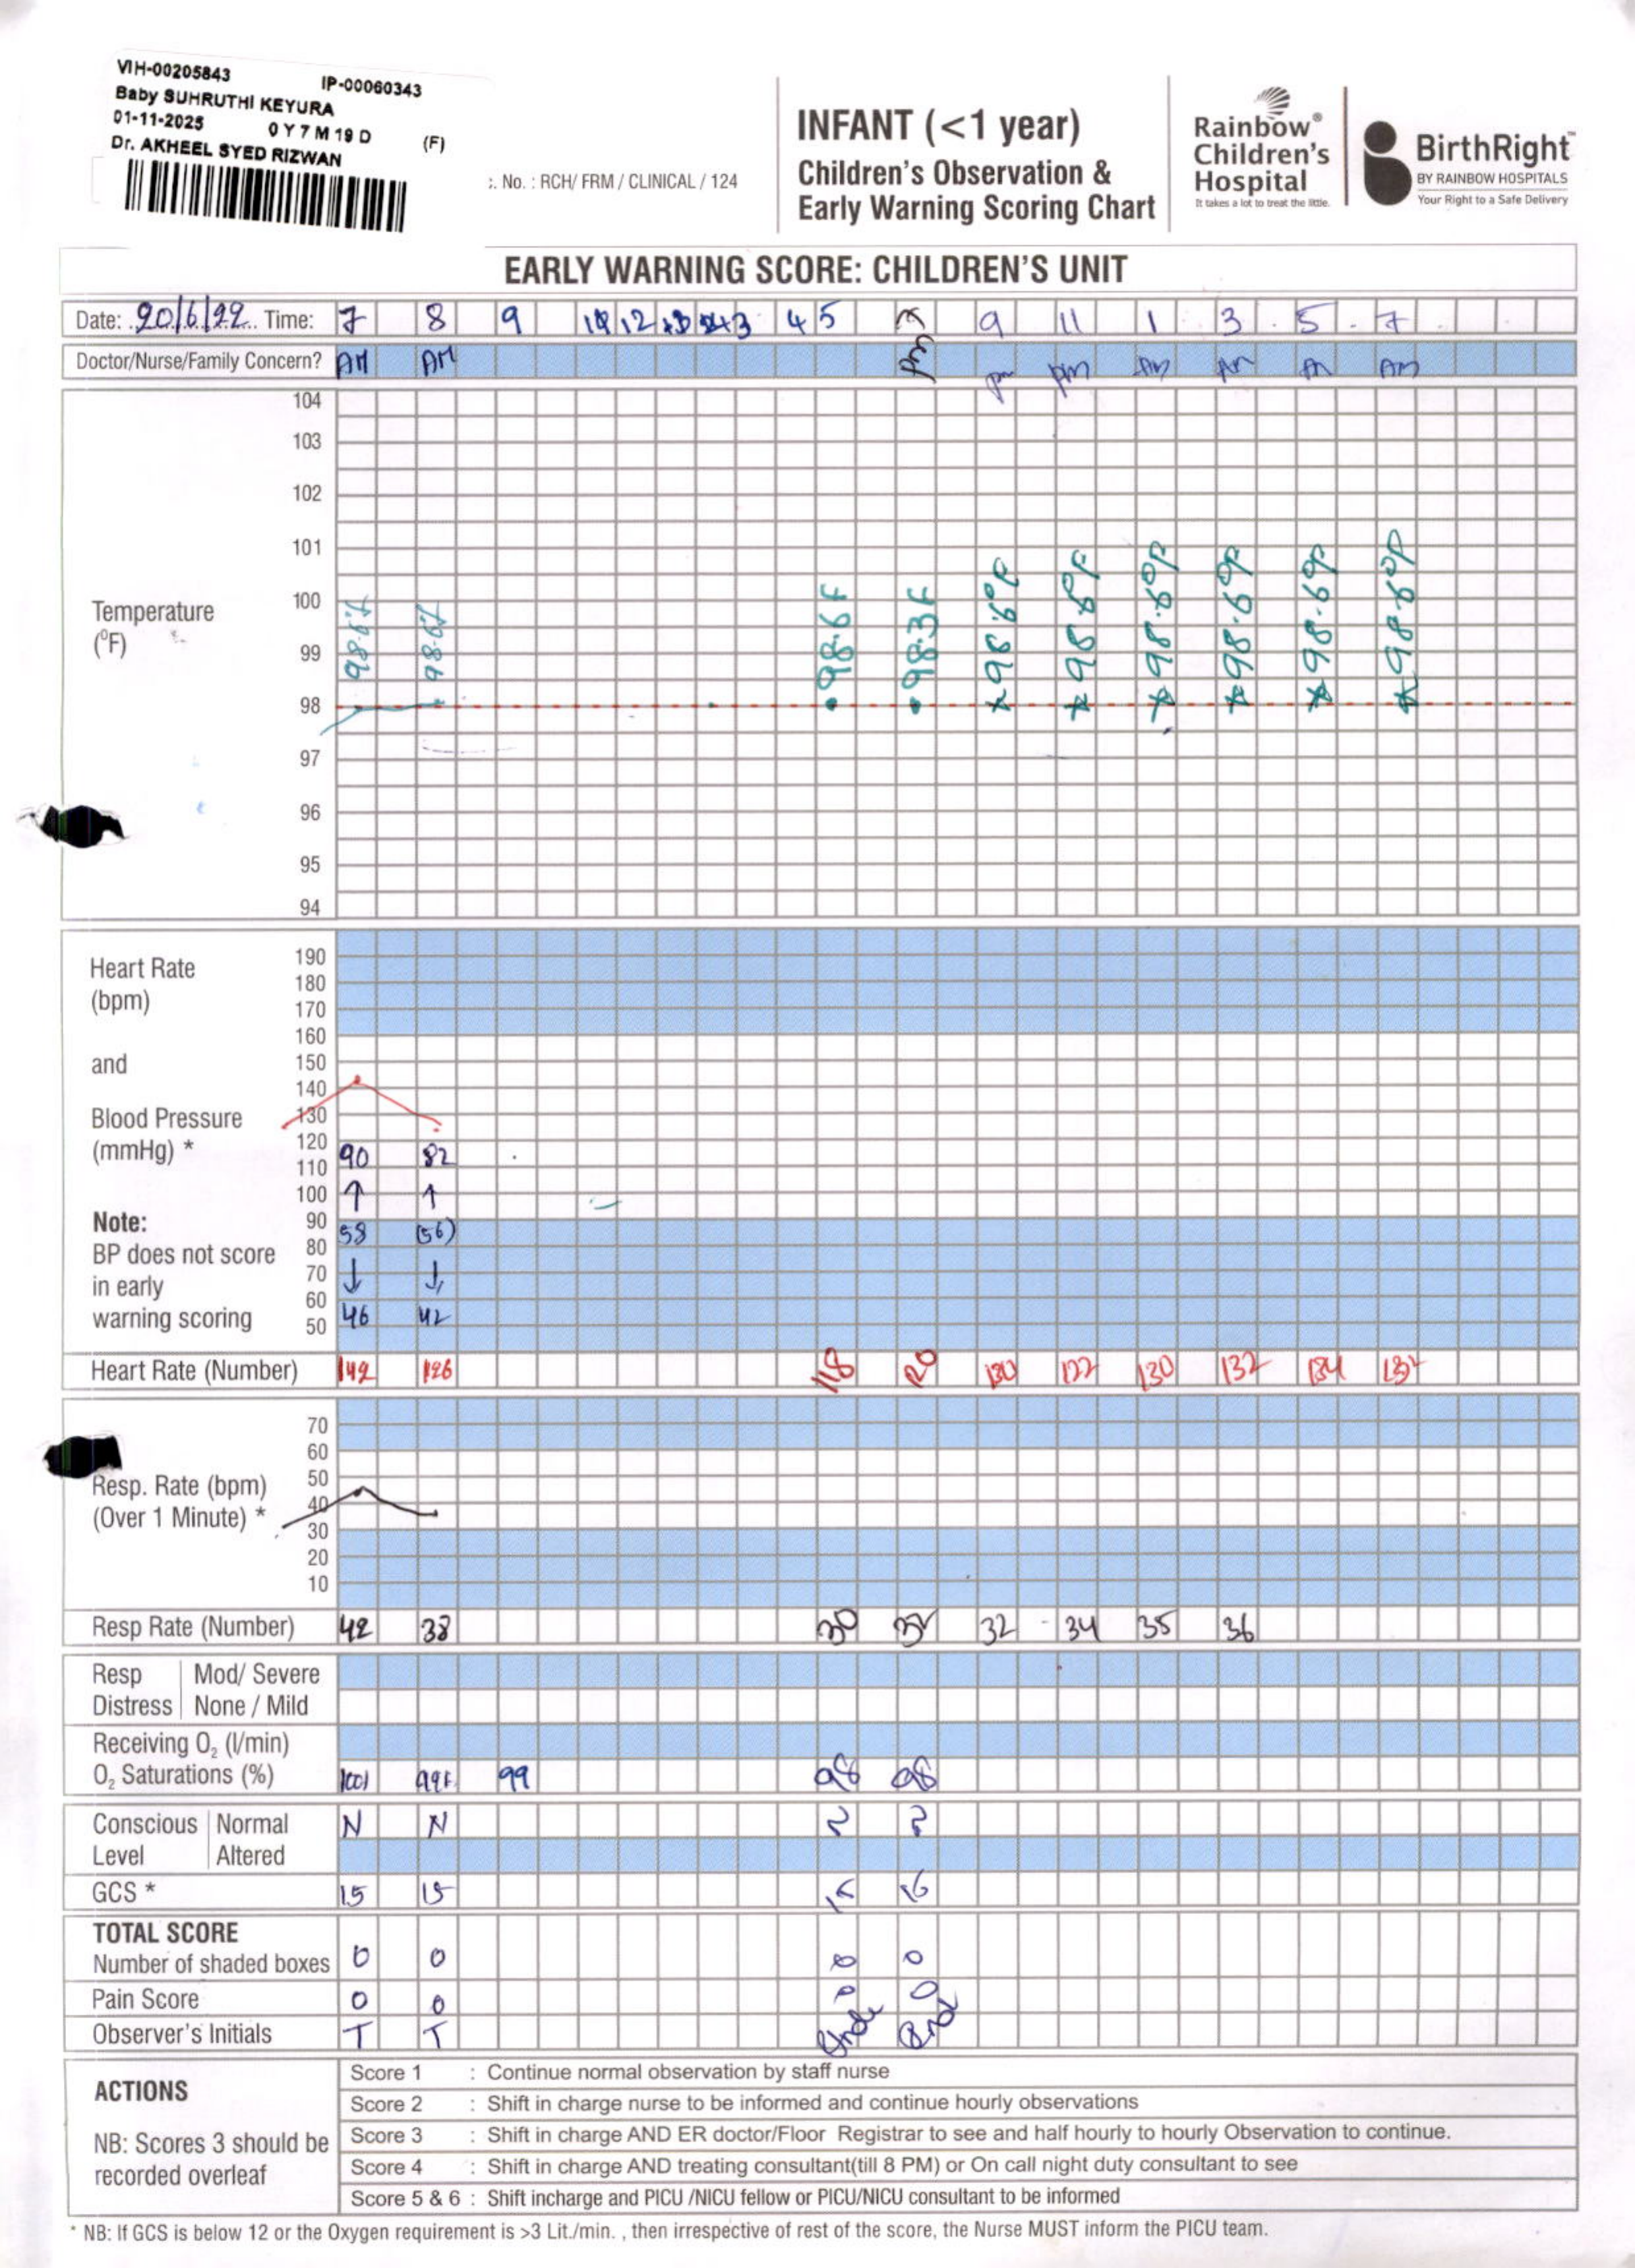 VIH-00205843 IP-00060343
Baby SUHRUTHI KEYURA
01-11-2025 0 Y 7 M 19 D (F)
Dr. AKHEEL SYED RIZWAN
:. No. : RCH/ FRM / CLINICAL / 124
INFANT (<1 year)
Children's Observation &
Early Warning Scoring Chart
Rainbow®
Children's
Hospital
It takes a lot to treat the little.
BirthRight™
BY RAINBOW HOSPITALS
Your Right to a Safe Delivery
EARLY WARNING SCORE: CHILDREN'S UNIT
Date: 20/6/22 Time: 7 8 9 12 3 4 5 9 11 1 3 5 7
Doctor/Nurse/Family Concern? AM AM pm pm pm AM AM AM AM
104
103
102
101
100
99
98
97
96
95
94
Temperature
(°F)
98.6F 98.3F 98.6°F 98.6°F 98.6°F 98.6°F 98.6°F
Heart Rate
(bpm)
and
Blood Pressure
(mmHg) *
Note:
BP does not score
in early
warning scoring
190
180
170
160
150
140
130
120
110
100
90
80
70
60
50
90 82
58 (56)
46 42
Heart Rate (Number) 142 126 118 120 130 122 130 132 134 132
Resp. Rate (bpm)
(Over 1 Minute) *
70
60
50
40
30
20
10
Resp Rate (Number) 42 38 30 32 32 34 35 36
Resp Distress Mod/ Severe
None / Mild
Receiving O2 (l/min)
O2 Saturations (%) 99 98 98
Conscious Level Normal N N
Altered
GCS * 15 15
TOTAL SCORE
Number of shaded boxes 0 0 0 0
Pain Score 0 0 0 0
Observer's Initials T T
ACTIONS
NB: Scores 3 should be
recorded overleaf
Score 1 : Continue normal observation by staff nurse
Score 2 : Shift in charge nurse to be informed and continue hourly observations
Score 3 : Shift in charge AND ER doctor/Floor Registrar to see and half hourly to hourly Observation to continue.
Score 4 : Shift in charge AND treating consultant(till 8 PM) or On call night duty consultant to see
Score 5 & 6 : Shift incharge and PICU /NICU fellow or PICU/NICU consultant to be informed
* NB: If GCS is below 12 or the Oxygen requirement is >3 Lit./min. , then irrespective of rest of the score, the Nurse MUST inform the PICU team.